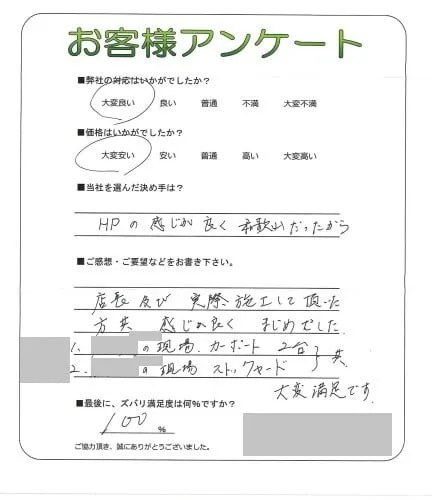 お客様アンケート
■弊社の対応はいかがでしたか?
大変良い 良い 普通 不満 大変不満
■価格はいかがでしたか?
大変安い 安い 普通 高い 大変高い
■当社を選んだ決め手は?
HPの感じが良く 和歌山だったから
■ご感想・ご要望などをお書き下さい。
店長及び 実際施工して頂いた
方共 感じが良く まじめでした
1. の現場.カーポート 2台
2. の現場 ストックヤード 共
大変満足です.
■最後に、ズバリ満足度は何%ですか?
100 %
ご協力頂き、誠にありがとうございました。